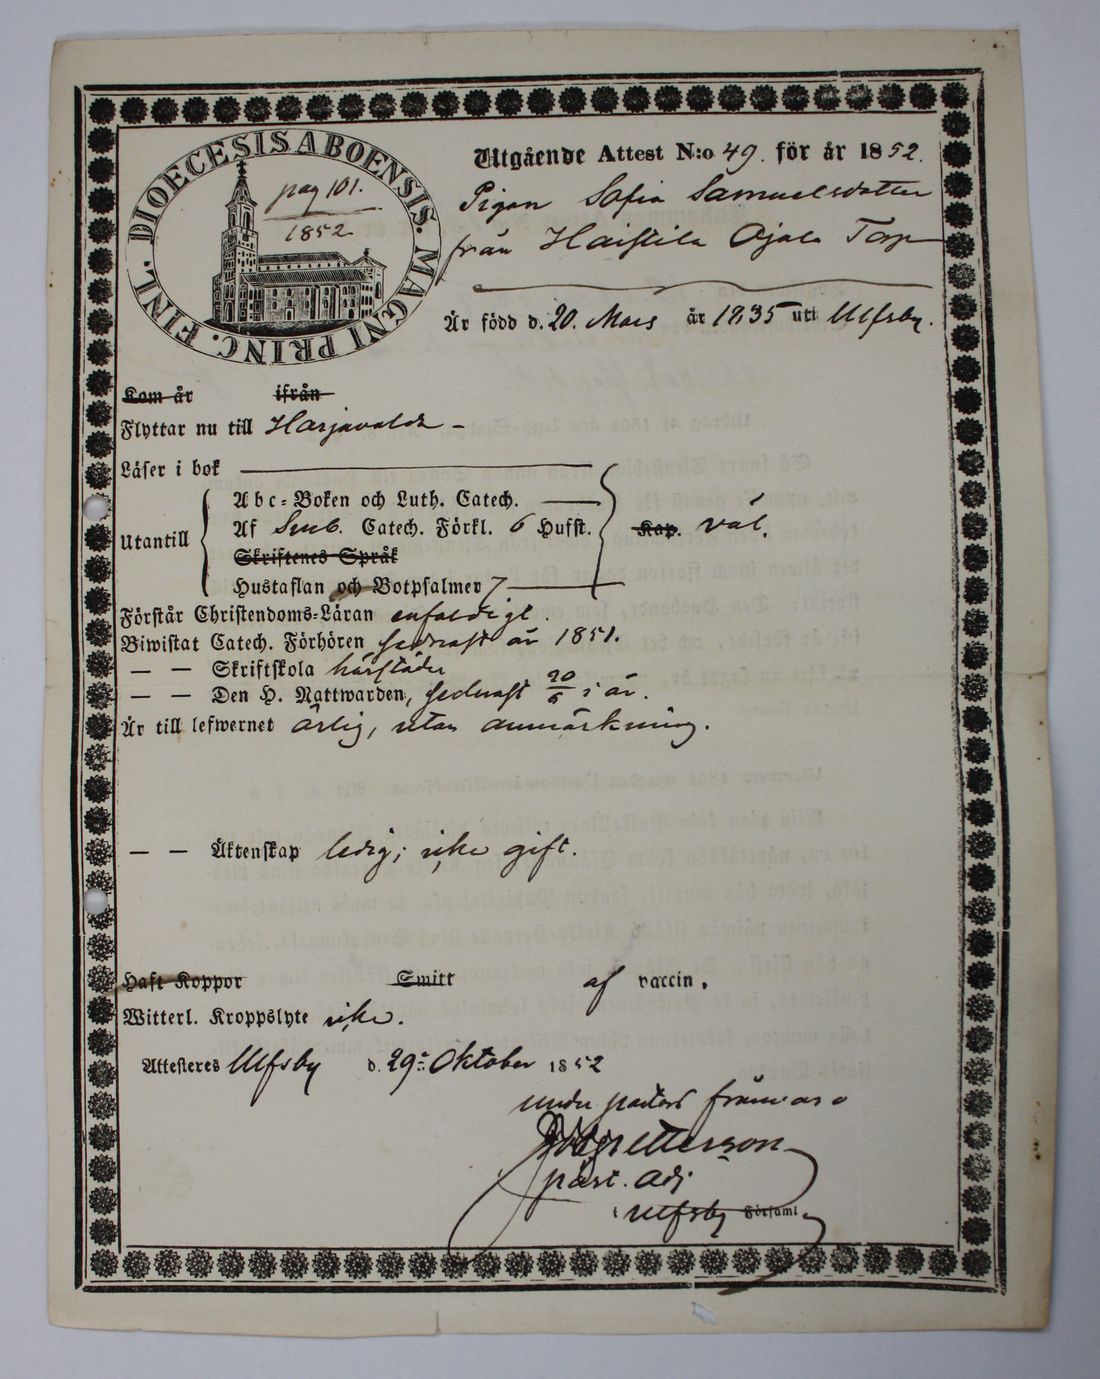 DIOECESIS ABOENSIS. MAGNI PRINC. FINL.
pag 101.
1852
Utgående Attest N:o 49. för år 1852.
Pigan Sofia Samuelsdotter
från Haistila Ojala Torp
Är född d. 20. Mars år 1835 uti Ulfsby.
Kom år ifrån
Flyttar nu till Harjavalda
Läser i bok
Abc-Boken och Luth. Catech.
Utantill Af Svub. Catech. Förkl. 6 Hufst. Kap. väl.
Skriftenes Språk
Hustaflan och Botpsalmer 7
Förstår Christendoms-Läran enfaldigt.
Biwistat Catech. Förhören sednast år 1851.
— — Skriftskola härstädes
— — Den H. Nattwarden, sednast 20/6 i år.
Är till lefwernet ärlig, utan anmärkning.
— — Äktenskap ledig; icke gift.
Haft Koppor Smitt af vaccin.
Witterl. Kroppslyte icke.
Attesteres Ulfsby d. 29:- Oktober 1852
under pastors frånvaro
past. adj
i Ulfsby Församl.